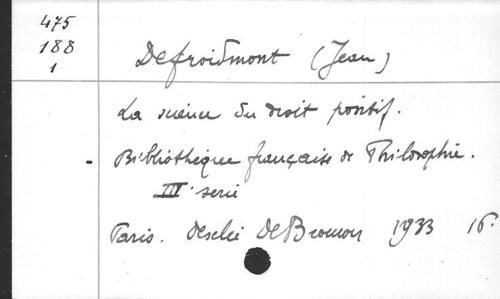 475
188
1
Defroidmont (Jean)
La science du droit positif.
- Bibliothèque française de Philosophie.
III serie
Paris. Desclée DeBrouwer 1933 16°